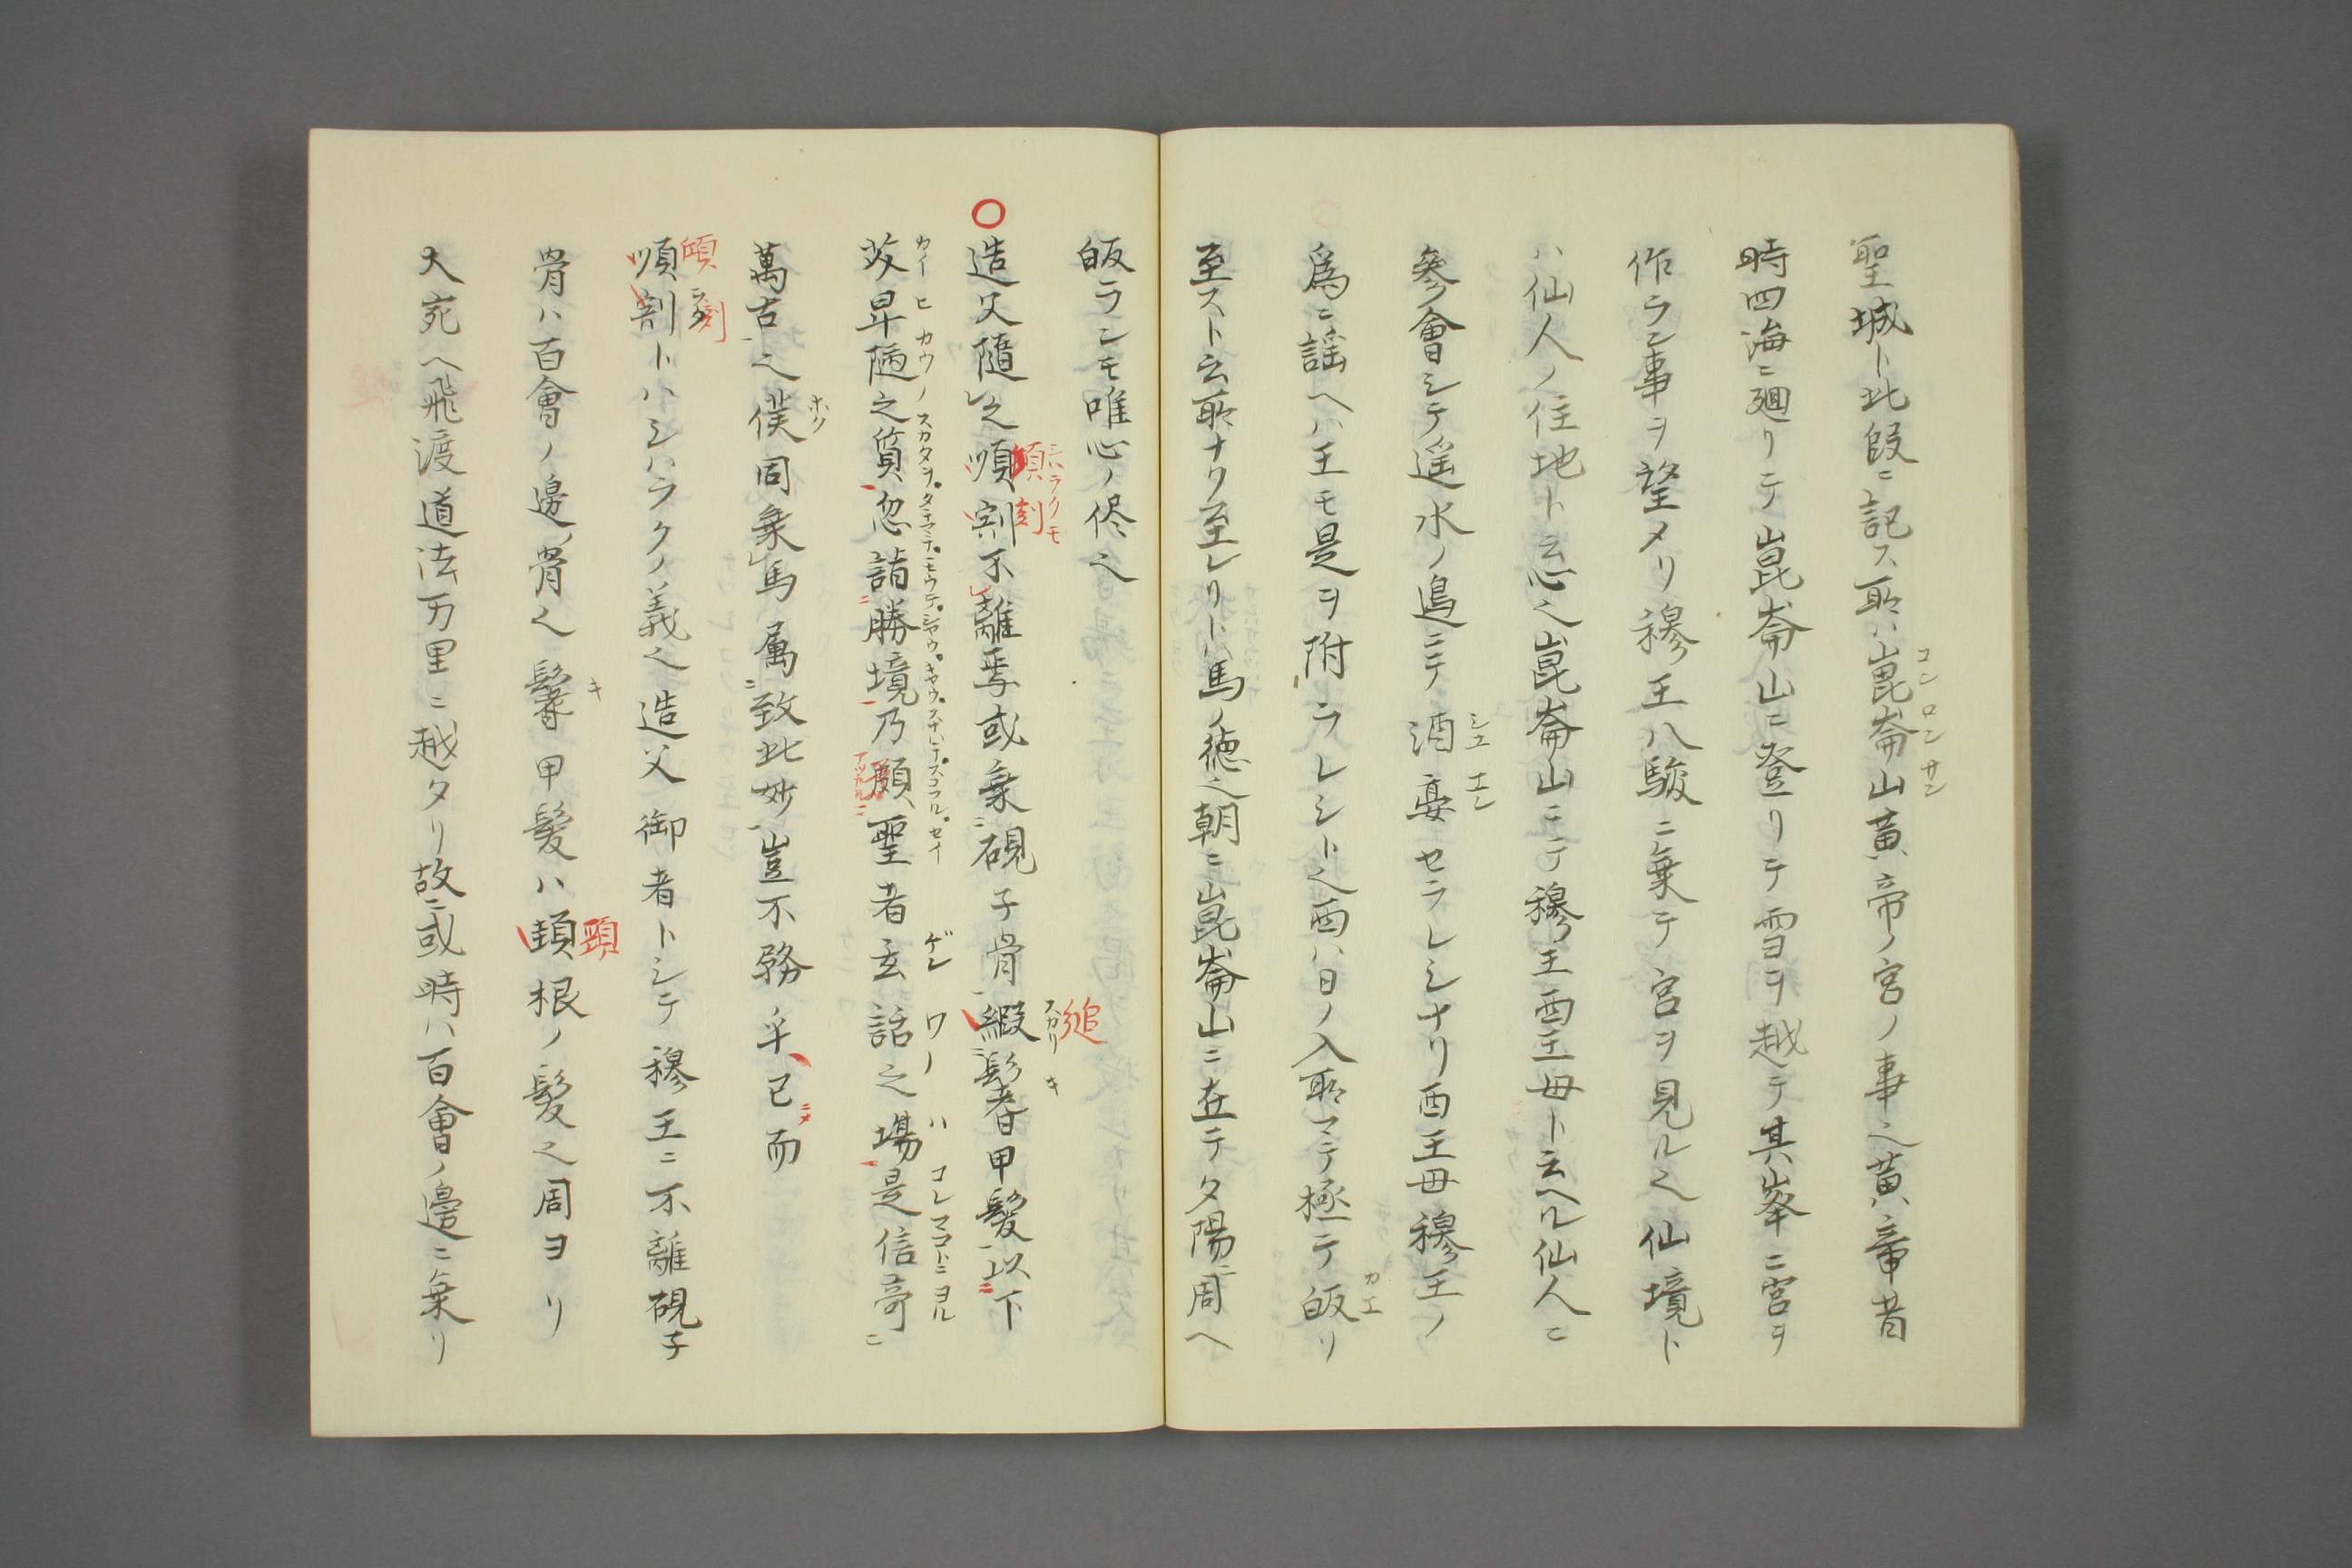 聖城ト此段ニ記ス所ハ崑崙山黄帝ノ宮ノ事也黄帝昔
時四海ニ廻リテ崑崙山ニ登リテ雪ヲ越テ其峯ニ宮ヲ
作ラン事ヲ望メリ穆王八駿ニ乗テ宮ヲ見ル也仙境ト
ハ仙人ノ住地ト云心也崑崙山ニテ穆王西王母ト云ヘル仙人ニ
參會シテ遥水ノ邉ニテ酒宴セラレシナリ西王母穆王ノ
爲ニ謡ヘハ王モ是ヲ附ラレシト也西ハ日ノ入所マテ極テ皈リ
至スト云所ナク至レリト馬ノ徳也朝ニ崑崙山ニ在テ夕陽ニ周ヘ
皈ランモ唯心ノ侭也
〇造父随之須刻不離焉或乗硯子骨緞鬐甲髪以下
茇卑陋之質忽詣勝境乃願聖者玄話之場是信哥ニ
萬古之僕同乗馬属致此妙豈不務乎已而
順割トハシハラクノ義也造父御者トシテ穆王ニ不離硯子
骨ハ百會ノ邊ノ骨也鬐甲髪ハ頸根ノ髪也周ヨリ
大宛ヘ飛渡道法万里ニ越タリ故ニ或時ハ百會ノ邊ニ乗リ